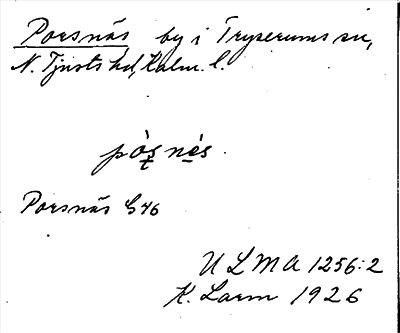 Porsnäs by i Tryserums sn,
N. Tjusts hd, Kalm. l.
pòş nès.
Porsnäs G 46
ULMA 1256:2
K. Larm 1926